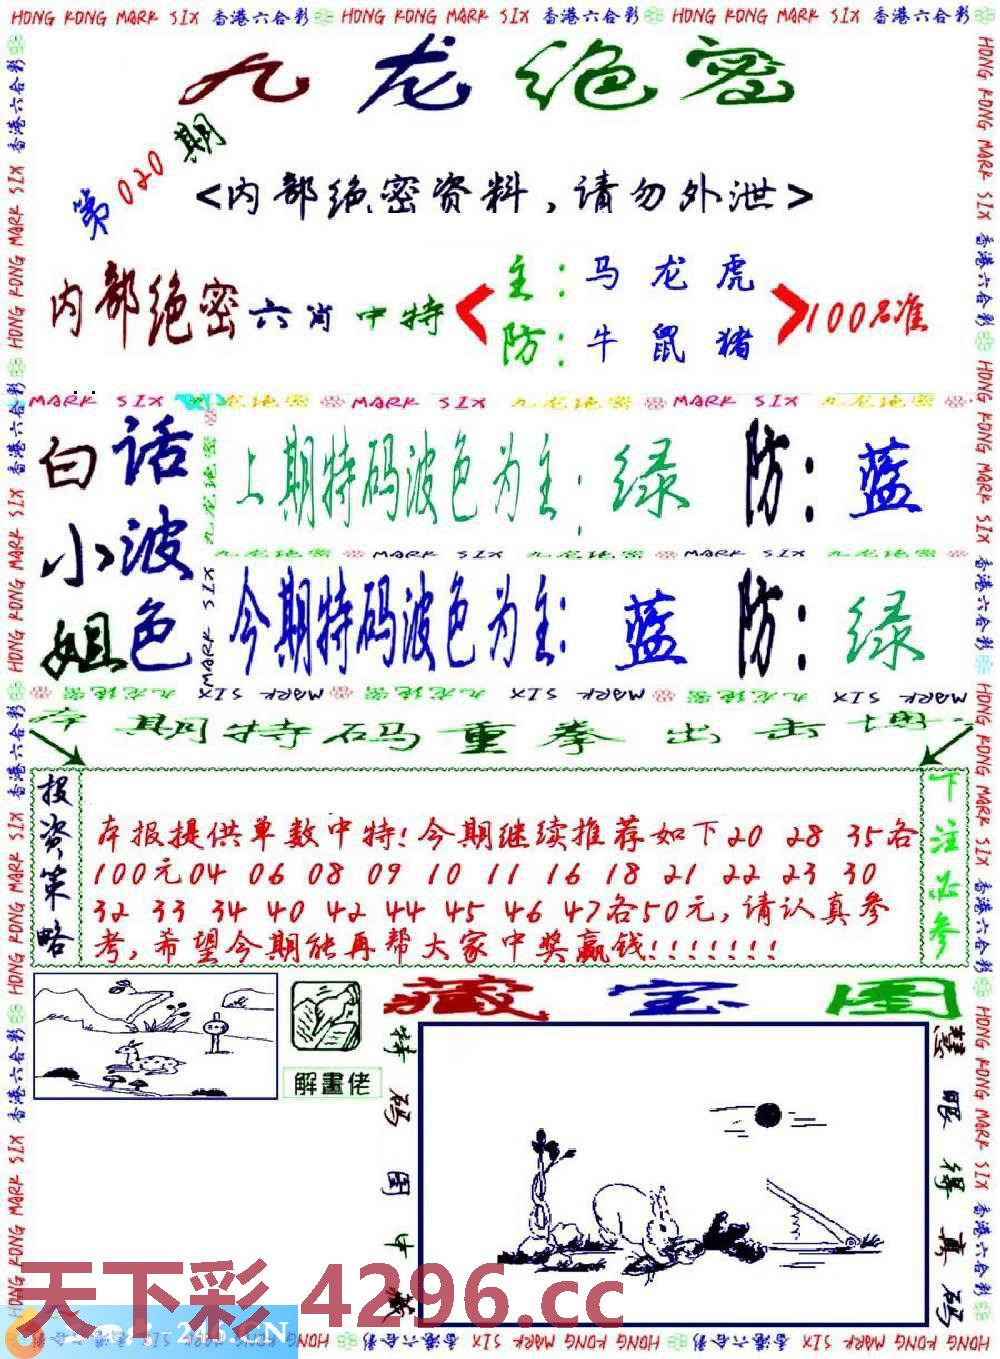 HONG KONG MARK SIX 香港六合彩 HONG KONG MARK SIX 香港六合彩 HONG KONG MARK SIX 香港六合彩
九龙绝密
第020期
<内部绝密资料,请勿外泄>
内部绝密六肖中特
主:马 龙 虎
防:牛 鼠 猪
100%准
MARK SIX 九龙绝密 MARK SIX 九龙绝密 MARK SIX 九龙绝密
白小姐
话波色
上期特码波色为主:绿 防:蓝
九龙绝密 MARK SIX 九龙绝密 MARK SIX 九龙绝密
今期特码波色为主:蓝 防:绿
本期特码重拳出击
投资策略
本报提供单数中特!今期继续推荐如下20 28 35各
100元04 06 08 09 10 11 16 18 21 22 23 30
32 33 34 40 42 44 45 46 47各50元,请认真参
考,希望今期能再帮大家中奖赢钱!!!!!!!
下注必参
藏宝图
解畫佬
特码图中藏
慧眼得真码
天下彩 4296.cc
246.CN